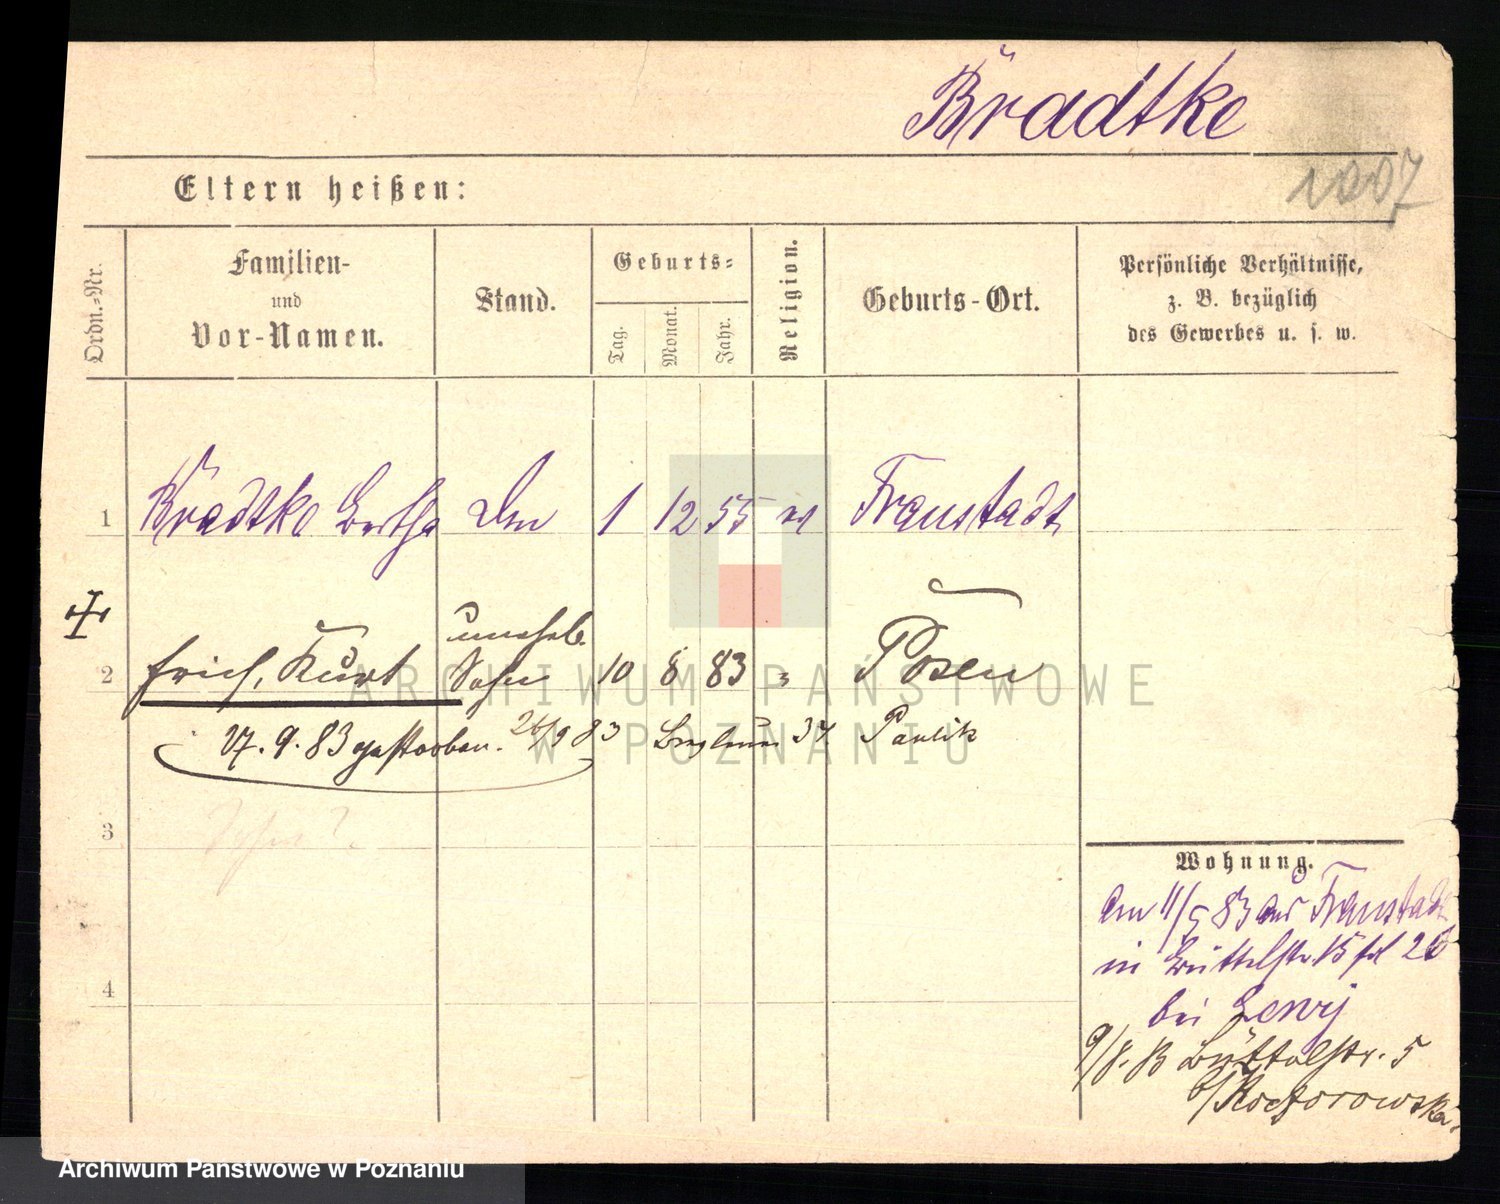 Bradtke
1007
Eltern heißen:
Ordn.-Nr.
Familien-
und
Vor-Namen.
Stand.
Geburts=
Tag.
Monat.
Jahr.
Religion.
Geburts-Ort.
Persönliche Verhältnisse,
z. B. bezüglich
des Gewerbes u. s. w.
1 Bradtke Bertha 1 12 55 Fraustadt
unehel.
2 Erich, Kurt Sohn 10 8 83 " Posen
17. 9. 83 gestorben. 26/9 83 37. Pawlik
3
4
Wohnung.
Am 11/5 83 aus Fraustadt
in Büttelstr. 15
bei Lewy
Büttelstr. 5
b/
ARCHIWUM PAŃSTWOWE
W POZNANIU
Archiwum Państwowe w Poznaniu